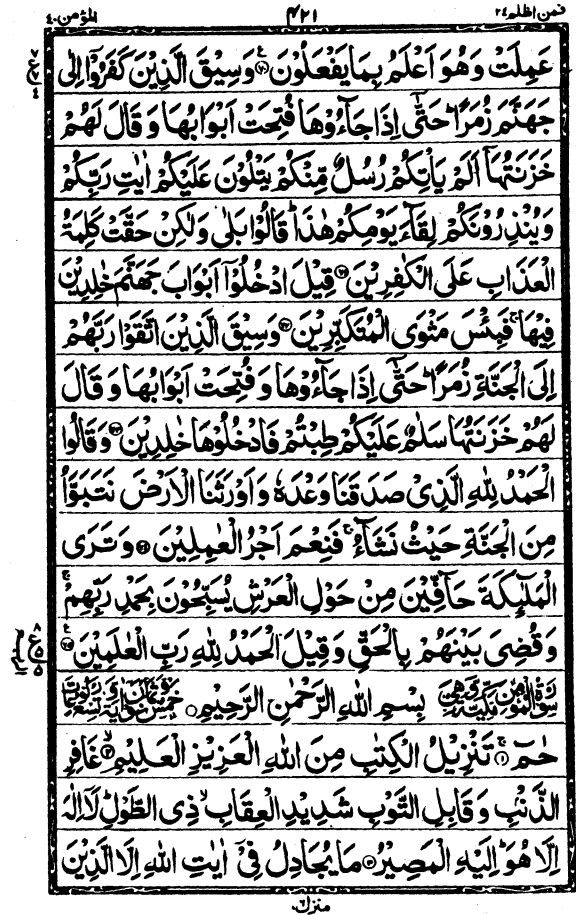 فمن اظلم ٢٤ ٤٢١ المؤمن ٤٠
عَمِلَتْ وَهُوَ اَعْلَمُ بِمَا يَفْعَلُوْنَ ۝٧٠ وَسِيْقَ الَّذِيْنَ كَفَرُوْۤا اِلٰى
جَهَنَّمَ زُمَرًا ؕ حَتّٰۤى اِذَا جَآءُوْهَا فُتِحَتْ اَبْوَابُهَا وَ قَالَ لَهُمْ
خَزَنَتُهَاۤ اَلَمْ يَاْتِكُمْ رُسُلٌ مِّنْكُمْ يَتْلُوْنَ عَلَيْكُمْ اٰيٰتِ رَبِّكُمْ
وَيُنْذِرُوْنَكُمْ لِقَآءَ يَوْمِكُمْ هٰذَا ؕ قَالُوْا بَلٰى وَلٰكِنْ حَقَّتْ كَلِمَةُ
الْعَذَابِ عَلَى الْكٰفِرِيْنَ ۝٧١ قِيْلَ ادْخُلُوْۤا اَبْوَابَ جَهَنَّمَ خٰلِدِيْنَ
فِيْهَا ۚ فَبِئْسَ مَثْوَى الْمُتَكَبِّرِيْنَ ۝٧٢ وَسِيْقَ الَّذِيْنَ اتَّقَوْا رَبَّهُمْ
اِلَى الْجَنَّةِ زُمَرًا ؕ حَتّٰۤى اِذَا جَآءُوْهَا وَ فُتِحَتْ اَبْوَابُهَا وَ قَالَ
لَهُمْ خَزَنَتُهَا سَلٰمٌ عَلَيْكُمْ طِبْتُمْ فَادْخُلُوْهَا خٰلِدِيْنَ ۝٧٣ وَ قَالُوا
الْحَمْدُ لِلّٰهِ الَّذِيْ صَدَقَنَا وَعْدَهٗ وَ اَوْرَثَنَا الْاَرْضَ نَتَبَوَّاُ
مِنَ الْجَنَّةِ حَيْثُ نَشَآءُ ۚ فَنِعْمَ اَجْرُ الْعٰمِلِيْنَ ۝٧٤ وَ تَرَى
الْمَلٰٓئِكَةَ حَآفِّيْنَ مِنْ حَوْلِ الْعَرْشِ يُسَبِّحُوْنَ بِحَمْدِ رَبِّهِمْ ۚ
وَ قُضِىَ بَيْنَهُمْ بِالْحَقِّ وَ قِيْلَ الْحَمْدُ لِلّٰهِ رَبِّ الْعٰلَمِيْنَ ۝٧٥
بِسْمِ اللّٰهِ الرَّحْمٰنِ الرَّحِيْمِ ۝
حٰمٓ ۝١ تَنْزِيْلُ الْكِتٰبِ مِنَ اللّٰهِ الْعَزِيْزِ الْعَلِيْمِ ۝٢ غَافِرِ
الذَّنْۢبِ وَ قَابِلِ التَّوْبِ شَدِيْدِ الْعِقَابِ ۙ ذِى الطَّوْلِ ؕ لَاۤ اِلٰهَ
اِلَّا هُوَ ؕ اِلَيْهِ الْمَصِيْرُ ۝٣ مَا يُجَادِلُ فِيْۤ اٰيٰتِ اللّٰهِ اِلَّا الَّذِيْنَ
منزل ٦